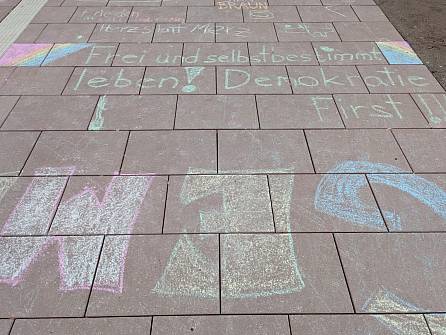 BRAUN
Herz statt Merz
Frei und selbstbestimmt
leben! Demokratie
! First!
WE